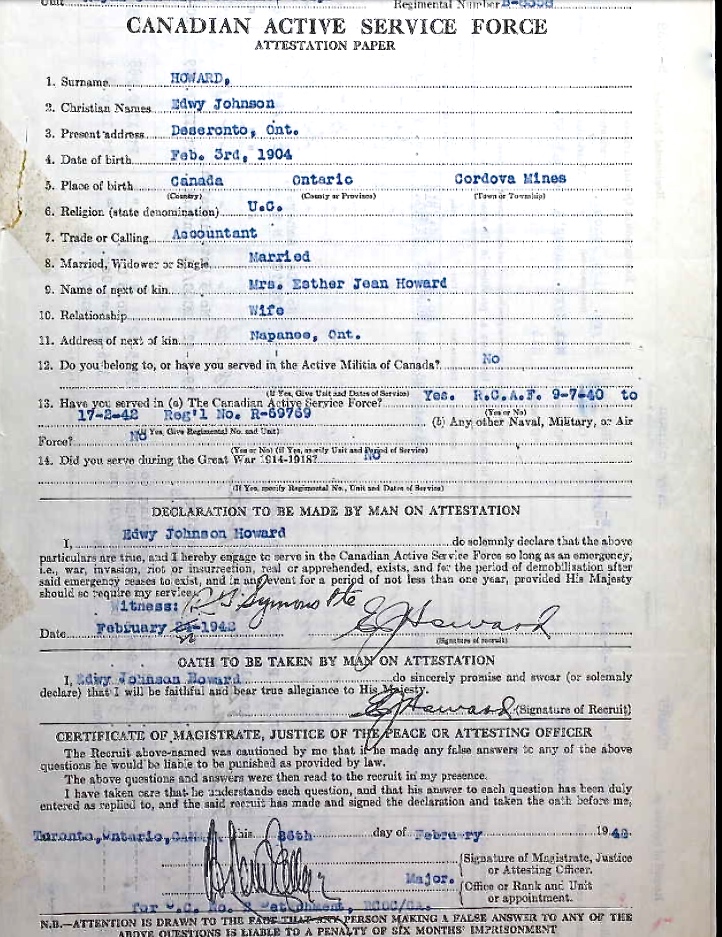 Regimental Number
CANADIAN ACTIVE SERVICE FORCE
ATTESTATION PAPER
1. Surname HOWARD,
2. Christian Names Edwy Johnson
3. Present address Deseronto, Ont.
4. Date of birth Feb. 3rd, 1904
5. Place of birth Canada Ontario Cordova Mines
(Country) (County or Province) (Town or Township)
6. Religion (state denomination) U.C.
7. Trade or Calling Accountant
8. Married, Widower or Single Married
9. Name of next of kin Mrs. Esther Jean Howard
10. Relationship Wife
11. Address of next of kin Napanee, Ont.
12. Do you belong to, or have you served in the Active Militia of Canada? No
(If Yes, Give Unit and Dates of Service)
13. Have you served in (a) The Canadian Active Service Force? Yes. R.C.A.F. 9-7-40 to
(Yes or No)
17-2-42 Reg'l No. R-69769 (b) Any other Naval, Military, or Air
(If Yes, Give Regimental No. and Unit)
Force? No
(Yes or No) (If Yes, specify Unit and Period of Service)
14. Did you serve during the Great War 1914-1918? No
(If Yes, specify Regimental No., Unit and Dates of Service)
DECLARATION TO BE MADE BY MAN ON ATTESTATION
I, Edwy Johnson Howard do solemnly declare that the above
particulars are true, and I hereby engage to serve in the Canadian Active Service Force so long as an emergency,
i.e., war, invasion, riot or insurrection, real or apprehended, exists, and for the period of demobilisation after
said emergency ceases to exist, and in any event for a period of not less than one year, provided His Majesty
should so require my services.
Witness: Symons Pte
Date February 1942 E J Howard
(Signature of recruit)
OATH TO BE TAKEN BY MAN ON ATTESTATION
I, Edwy Johnson Howard do sincerely promise and swear (or solemnly
declare) that I will be faithful and bear true allegiance to His Majesty.
E J Howard (Signature of Recruit)
CERTIFICATE OF MAGISTRATE, JUSTICE OF THE PEACE OR ATTESTING OFFICER
The Recruit above-named was cautioned by me that if he made any false answers to any of the above
questions he would be liable to be punished as provided by law.
The above questions and answers were then read to the recruit in my presence.
I have taken care that he understands each question, and that his answer to each question has been duly
entered as replied to, and the said recruit has made and signed the declaration and taken the oath before me,
Toronto, Ontario, this day of February 1942
(Signature of Magistrate, Justice
Major. or Attesting Officer.
(Office or Rank and Unit
or appointment.
for O.C. No.
N.B.—ATTENTION IS DRAWN TO THE FACT THAT ANY PERSON MAKING A FALSE ANSWER TO ANY OF THE
ABOVE QUESTIONS IS LIABLE TO A PENALTY OF SIX MONTHS' IMPRISONMENT